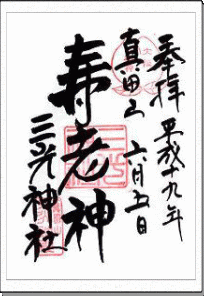 奉拝 平成十九年
真田山 六月五日
寿老神
三光神社